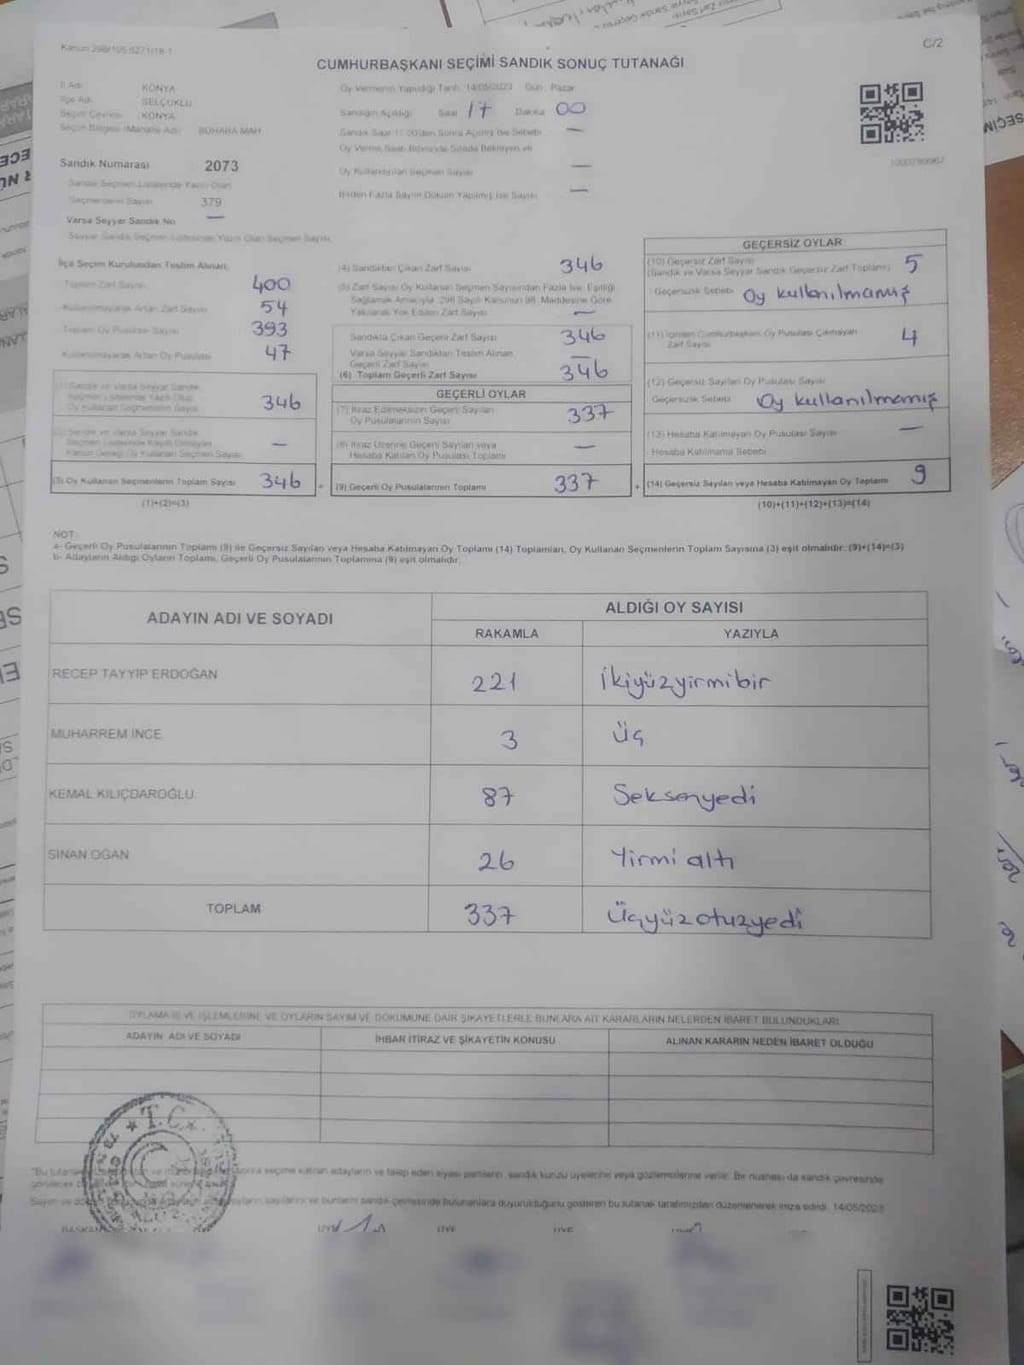 Kanun 298/105 6271/18-1
C/2
CUMHURBAŞKANI SEÇİMİ SANDIK SONUÇ TUTANAĞI
İl Adı : KONYA
İlçe Adı : SELÇUKLU
Seçim Çevresi : KONYA
Seçim Bölgesi (Mahalle Adı) : BUHARA MAH
Sandık Numarası 2073
Sandık Seçmen Listesinde Yazılı Olan
Seçmenlerin Sayısı 379
Varsa Seyyar Sandık No —
Seyyar Sandık Seçmen Listesinde Yazılı Olan Seçmen Sayısı
Oy Vermenin Yapıldığı Tarih :14/05/2023 Gün : Pazar
Sandığın Açıldığı Saat 17 Dakika 00
Sandık Saat 17.00'den Sonra Açılmış İse Sebebi —
Oy Verme Saati Bitiminde Sırada Bekleyen ve
Oy Kullandırılan Seçmen Sayısı —
Birden Fazla Sayım Döküm Yapılmış İse Sayısı —
İlçe Seçim Kurulundan Teslim Alınan;
Toplam Zarf Sayısı 400
Kullanılmayarak Artan Zarf Sayısı 54
Toplam Oy Pusulası Sayısı 393
Kullanılmayarak Artan Oy Pusulası 47
(1) Sandık ve Varsa Seyyar Sandık
Seçmen Listesinde Yazılı Olup
Oy Kullanan Seçmenlerin Sayısı 346
(2) Sandık ve Varsa Seyyar Sandık
Seçmen Listesinde Kayıtlı Olmayan
Kanun Gereği Oy Kullanan Seçmen Sayısı —
(3) Oy Kullanan Seçmenlerin Toplam Sayısı 346
(1)+(2)=(3)
(4) Sandıktan Çıkan Zarf Sayısı 346
(5) Zarf Sayısı Oy Kullanan Seçmen Sayısından Fazla İse, Eşitliği
Sağlamak Amacıyla 298 Sayılı Kanunun 98. Maddesine Göre
Yakılarak Yok Edilen Zarf Sayısı —
Sandıkta Çıkan Geçerli Zarf Sayısı 346
Varsa Seyyar Sandıktan Teslim Alınan
Geçerli Zarf Sayısı —
(6) Toplam Geçerli Zarf Sayısı 346
GEÇERLİ OYLAR
(7) İtiraz Edilmeksizin Geçerli Sayılan
Oy Pusulalarının Sayısı 337
(8) İtiraz Üzerine Geçerli Sayılan veya
Hesaba Katılan Oy Pusulası Toplamı —
(9) Geçerli Oy Pusulalarının Toplamı 337
GEÇERSİZ OYLAR
(10) Geçersiz Zarf Sayısı
(Sandık ve Varsa Seyyar Sandık Geçersiz Zarf Toplamı) 5
Geçersizlik Sebebi Oy kullanılmamış
(11) İçinden Cumhurbaşkanı Oy Pusulası Çıkmayan
Zarf Sayısı 4
(12) Geçersiz Sayılan Oy Pusulası Sayısı
Geçersizlik Sebebi Oy kullanılmamış
(13) Hesaba Katılmayan Oy Pusulası Sayısı —
Hesaba Katılmama Sebebi
(14) Geçersiz Sayılan veya Hesaba Katılmayan Oy Toplamı 9
(10)+(11)+(12)+(13)=(14)
NOT:
a- Geçerli Oy Pusulalarının Toplamı (9) ile Geçersiz Sayılan veya Hesaba Katılmayan Oy Toplamı (14) Toplamları, Oy Kullanan Seçmenlerin Toplam Sayısına (3) eşit olmalıdır. (9)+(14)=(3)
b- Adayların Aldığı Oyların Toplamı, Geçerli Oy Pusulalarının Toplamına (9) eşit olmalıdır.
ADAYIN ADI VE SOYADI
ALDIĞI OY SAYISI
RAKAMLA YAZIYLA
RECEP TAYYİP ERDOĞAN 221 İkiyüzyirmibir
MUHARREM İNCE 3 Üç
KEMAL KILIÇDAROĞLU 87 Seksenyedi
SİNAN OĞAN 26 Yirmi altı
TOPLAM 337 Üçyüzotuzyedi
OYLAMA İŞ VE İŞLEMLERİNE VE OYLARIN SAYIM VE DÖKÜMÜNE DAİR ŞİKAYETLERLE BUNLARA AİT KARARLARIN NELERDEN İBARET BULUNDUKLARI
ADAYIN ADI VE SOYADI İHBAR İTİRAZ VE ŞİKAYETİN KONUSU ALINAN KARARIN NEDEN İBARET OLDUĞU
T.C.
seçime katılan adayların ve talep eden siyasi partilerin sandık kurulu üyelerine veya gözlemcilerine verilir. Bir nüshası da sandık çevresinde
sayılarını ve bunların sandık çevresinde bulunanlara duyurulduğunu gösteren bu tutanak tarafımızdan düzenlenerek imza edildi. 14/05/2023
BAŞKAN ÜYE ÜYE ÜYE ÜYE